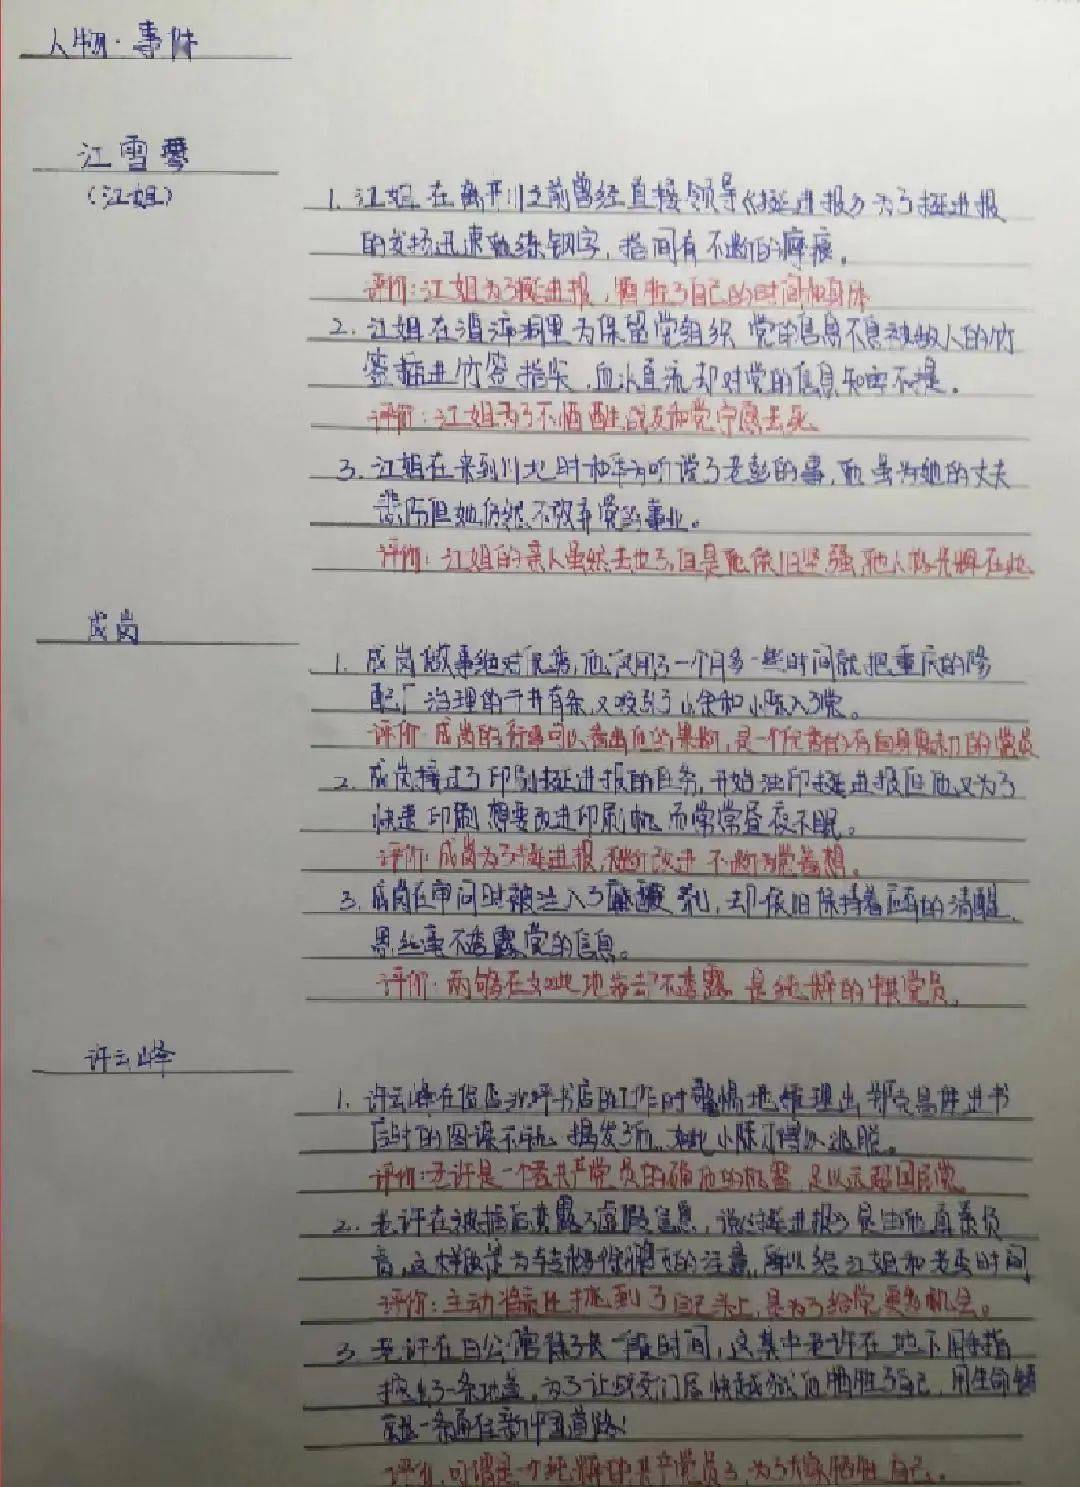 人物·事件
江雪琴
（江姐）
1. 江姐在离开川之前曾经直接领导《挺进报》为了挺进报
的发扬迅速 练钢字，指间有不断的 痕。
评价：江姐为了挺进报，牺牲了自己的时间和身体
2. 江姐在渣滓洞里为保留党组织 党的信息不 被敌人的竹
签插进竹签指尖，血水直流却对党的信息 不提。
评价：江姐为了不牺牲战友和党宁愿去死
3. 江姐在来到川北时和 听说了老彭的事，她虽为她的丈夫
悲伤但她仍然不放弃党的事业。
评价：江姐的亲人虽然去世了，但是她依旧坚强她人格光辉在此
成岗
1. 成岗做事绝对优秀，他仅用了一个月多一些时间就把重庆的修
配厂治理的井井有条又吸引了 余和小陈入了党。
评价：成岗的行事可以看出他的果断，是一个优秀的有 力的党员
2. 成岗接过了印刷挺进报的任务，开始油印挺进报但他又为了
快速印刷想要改进印刷机而常常昼夜不眠。
评价：成岗为了挺进报，积极改进 不断为党着想。
3. 成岗在审问时被注入了 剂，却依旧保持着 的清醒，
丝毫不透露党的信息。
评价：能够在如此地步却不透露 是纯粹的中共党员。
许云峰
1. 许云峰在 沙坪书店的工作时警惕地推理出郑克昌进书
店时的图谋不轨，揭发了他，如此小陈才得以逃脱。
评价：老许是一个 共产党员的确他的机警 足以 国民党
2. 老许在被捕后 露了虚假信息，说《挺进报》是由他真系负
责，这样做是为 的注意，所以给江姐和老 时间
评价：主动将责任揽到了自己头上，是为了给党更多机会。
3. 老许在白公馆 了一段时间，这其中老许在地下用手指
挖出了一条地道，为了让战友们尽快越狱他牺牲了自己，用生命
一条通往新中国道路！
评价：可谓是一个纯粹的共产党员了，为了大家牺牲自己。